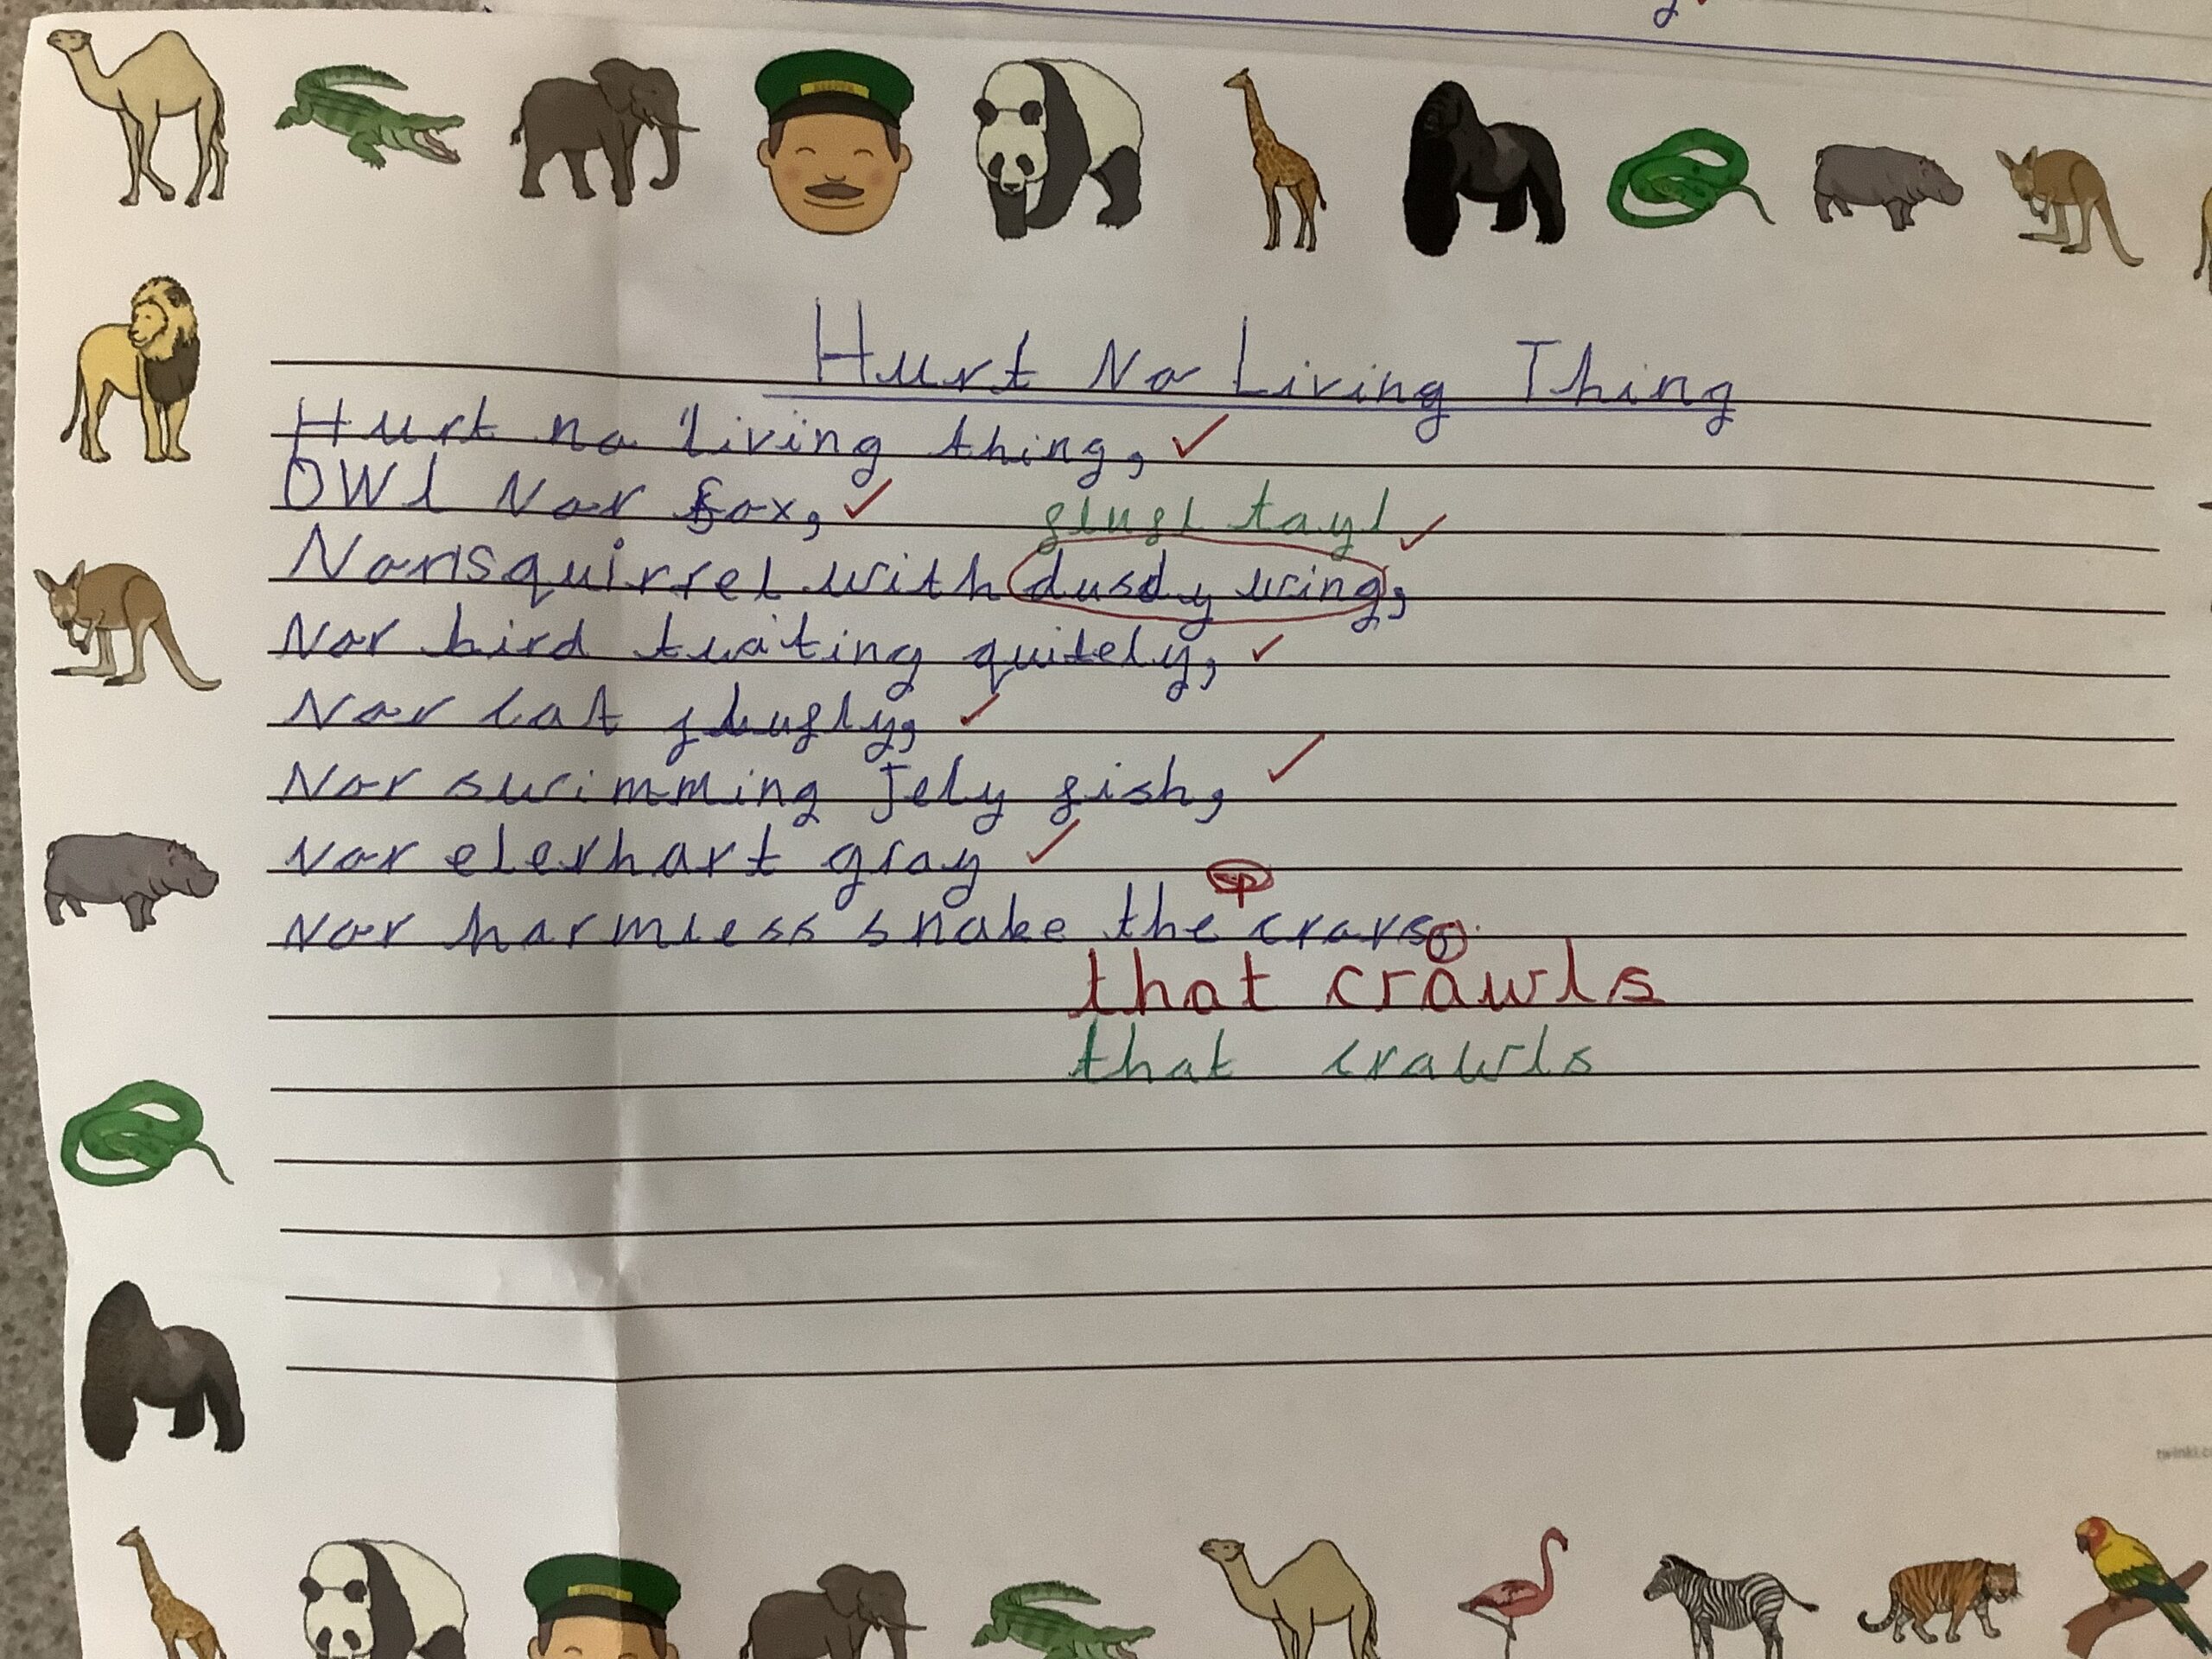 Hurt No Living Thing
Hurt no living thing,
OWl Nor fox,
flufl tayl
Nor squirrel with dusdy wing,
Nor bird twating quitely,
Nor cat flufly,
Nor swimming Jely fish,
Nor elerhart gray
sp
Nor harmless snake the crars.
that crawls
that crawls